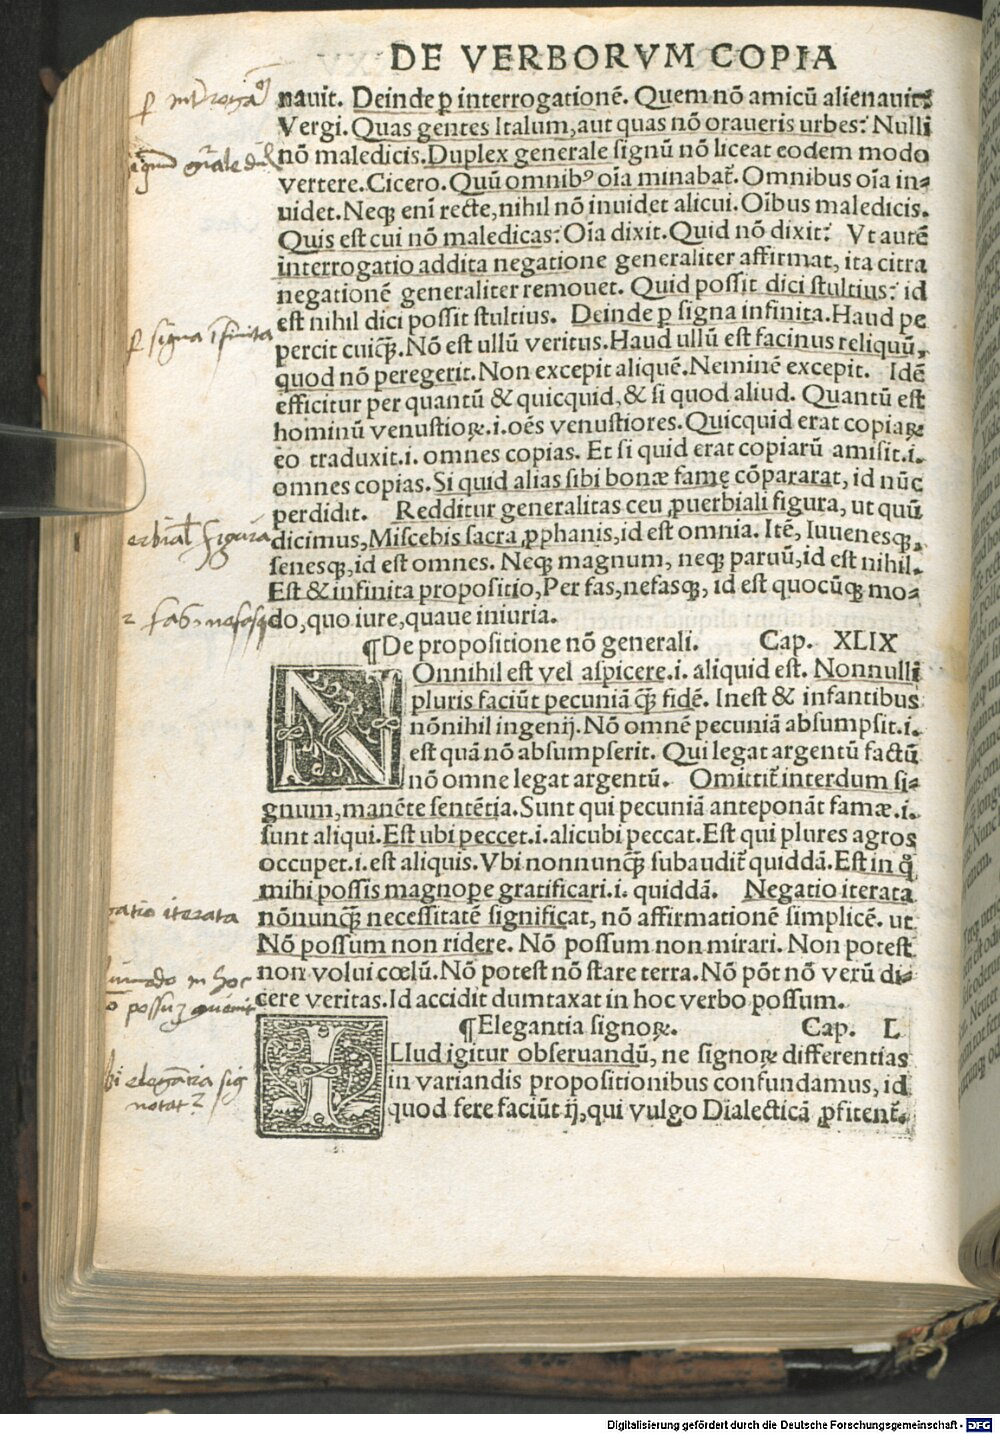 DE VERBORVM COPIA
nauit. Deinde ꝑ interrogationē. Quem nō amicū alienauit?
Vergi. Quas gentes Italum, aut quas nō oraueris urbes? Nulli
nō maledicis. Duplex generale signū nō liceat eodem modo
vertere. Cicero. Quū omnibꝰ oīa minabat᷑. Omnibus oīa in⸗
uidet. Neqꝫ enī recte, nihil nō inuidet alicui. Oībus maledicis.
Quis est cui nō maledicas? Oīa dixit. Quid nō dixit? Vt autē
interrogatio addita negatione generaliter affirmat, ita citra
negationē generaliter remouet. Quid possit dici stultius? id
est nihil dici possit stultius. Deinde ꝑ signa infinita. Haud pe
percit cuiq̄ꝫ. Nō est ullū veritus. Haud ullū est facinus reliquū,
quod nō peregerit. Non excepit aliquē. Neminē excepit. Idē
efficitur per quantū & quicquid, & si quod aliud. Quantū est
hominū venustioꝝ .i. oēs venustiores. Quicquid erat copiaꝝ
eo traduxit .i. omnes copias. Et si quid erat copiarū amisit .i.
omnes copias. Si quid alias sibi bonæ famę cōpararat, id nūc
perdidit. Redditur generalitas ceu ꝓuerbiali figura, ut quū
dicimus, Miscebis sacra ꝓphanis, id est omnia. Itē, Iuuenesqꝫ,
senesqꝫ, id est omnes. Neqꝫ magnum, neqꝫ paruū, id est nihil.
Est & infinita propositio, Per fas, nefasqꝫ, id est quocūqꝫ mo⸗
do, quo iure, quaue iniuria.
¶De propositione nō generali. Cap. XLIX
NOnnihil est vel aspicere .i. aliquid est. Nonnulli
pluris faciūt pecuniā q̄ꝫ fidē. Inest & infantibus
nōnihil ingenij. Nō omnē pecuniā absumpsit .i.
est quā nō absumpserit. Qui legat argentū factū
nō omne legat argentū. Omittit᷑ interdum si⸗
gnum, manēte sentētia. Sunt qui pecuniā anteponāt famæ .i.
sunt aliqui. Est ubi peccet .i. alicubi peccat. Est qui plures agros
occupet .i. est aliquis. Vbi nonnunq̄ꝫ subaudit᷑ quiddā. Est in q̊
mihi possis magnope gratificari .i. quiddā. Negatio iterata
nōnunq̄ꝫ necessitatē significat, nō affirmationē simplicē. ut
Nō possum non ridere. Nō possum non mirari. Non potest
non volui cœlū. Nō potest nō stare terra. Nō pōt nō verū di⸗
cere veritas. Id accidit dumtaxat in hoc verbo possum.
¶Elegantia signoꝝ. Cap. L
ILlud igitur obseruandū, ne signoꝝ differentias
in variandis propositionibus confundamus, id
quod fere faciūt ij, qui vulgo Dialecticā ꝓfitent᷑.
ꝑ signa īfinita
fas, nefasqꝫ
iterata
Digitalisierung gefördert durch die Deutsche Forschungsgemeinschaft - DFG